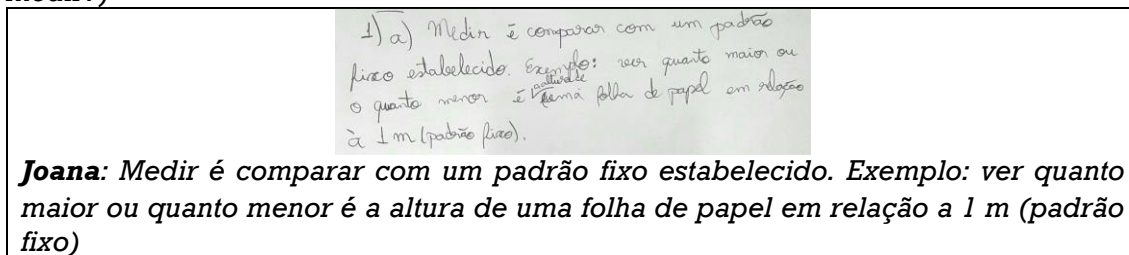 1) a) Medir é comparar com um padrão
fixo estabelecido. Exemplo: ver quanto maior ou
a altura de
o quanto menor é uma folha de papel em relação
à 1 m (padrão fixo).
Joana: Medir é comparar com um padrão fixo estabelecido. Exemplo: ver quanto
maior ou quanto menor é a altura de uma folha de papel em relação a 1 m (padrão
fixo)